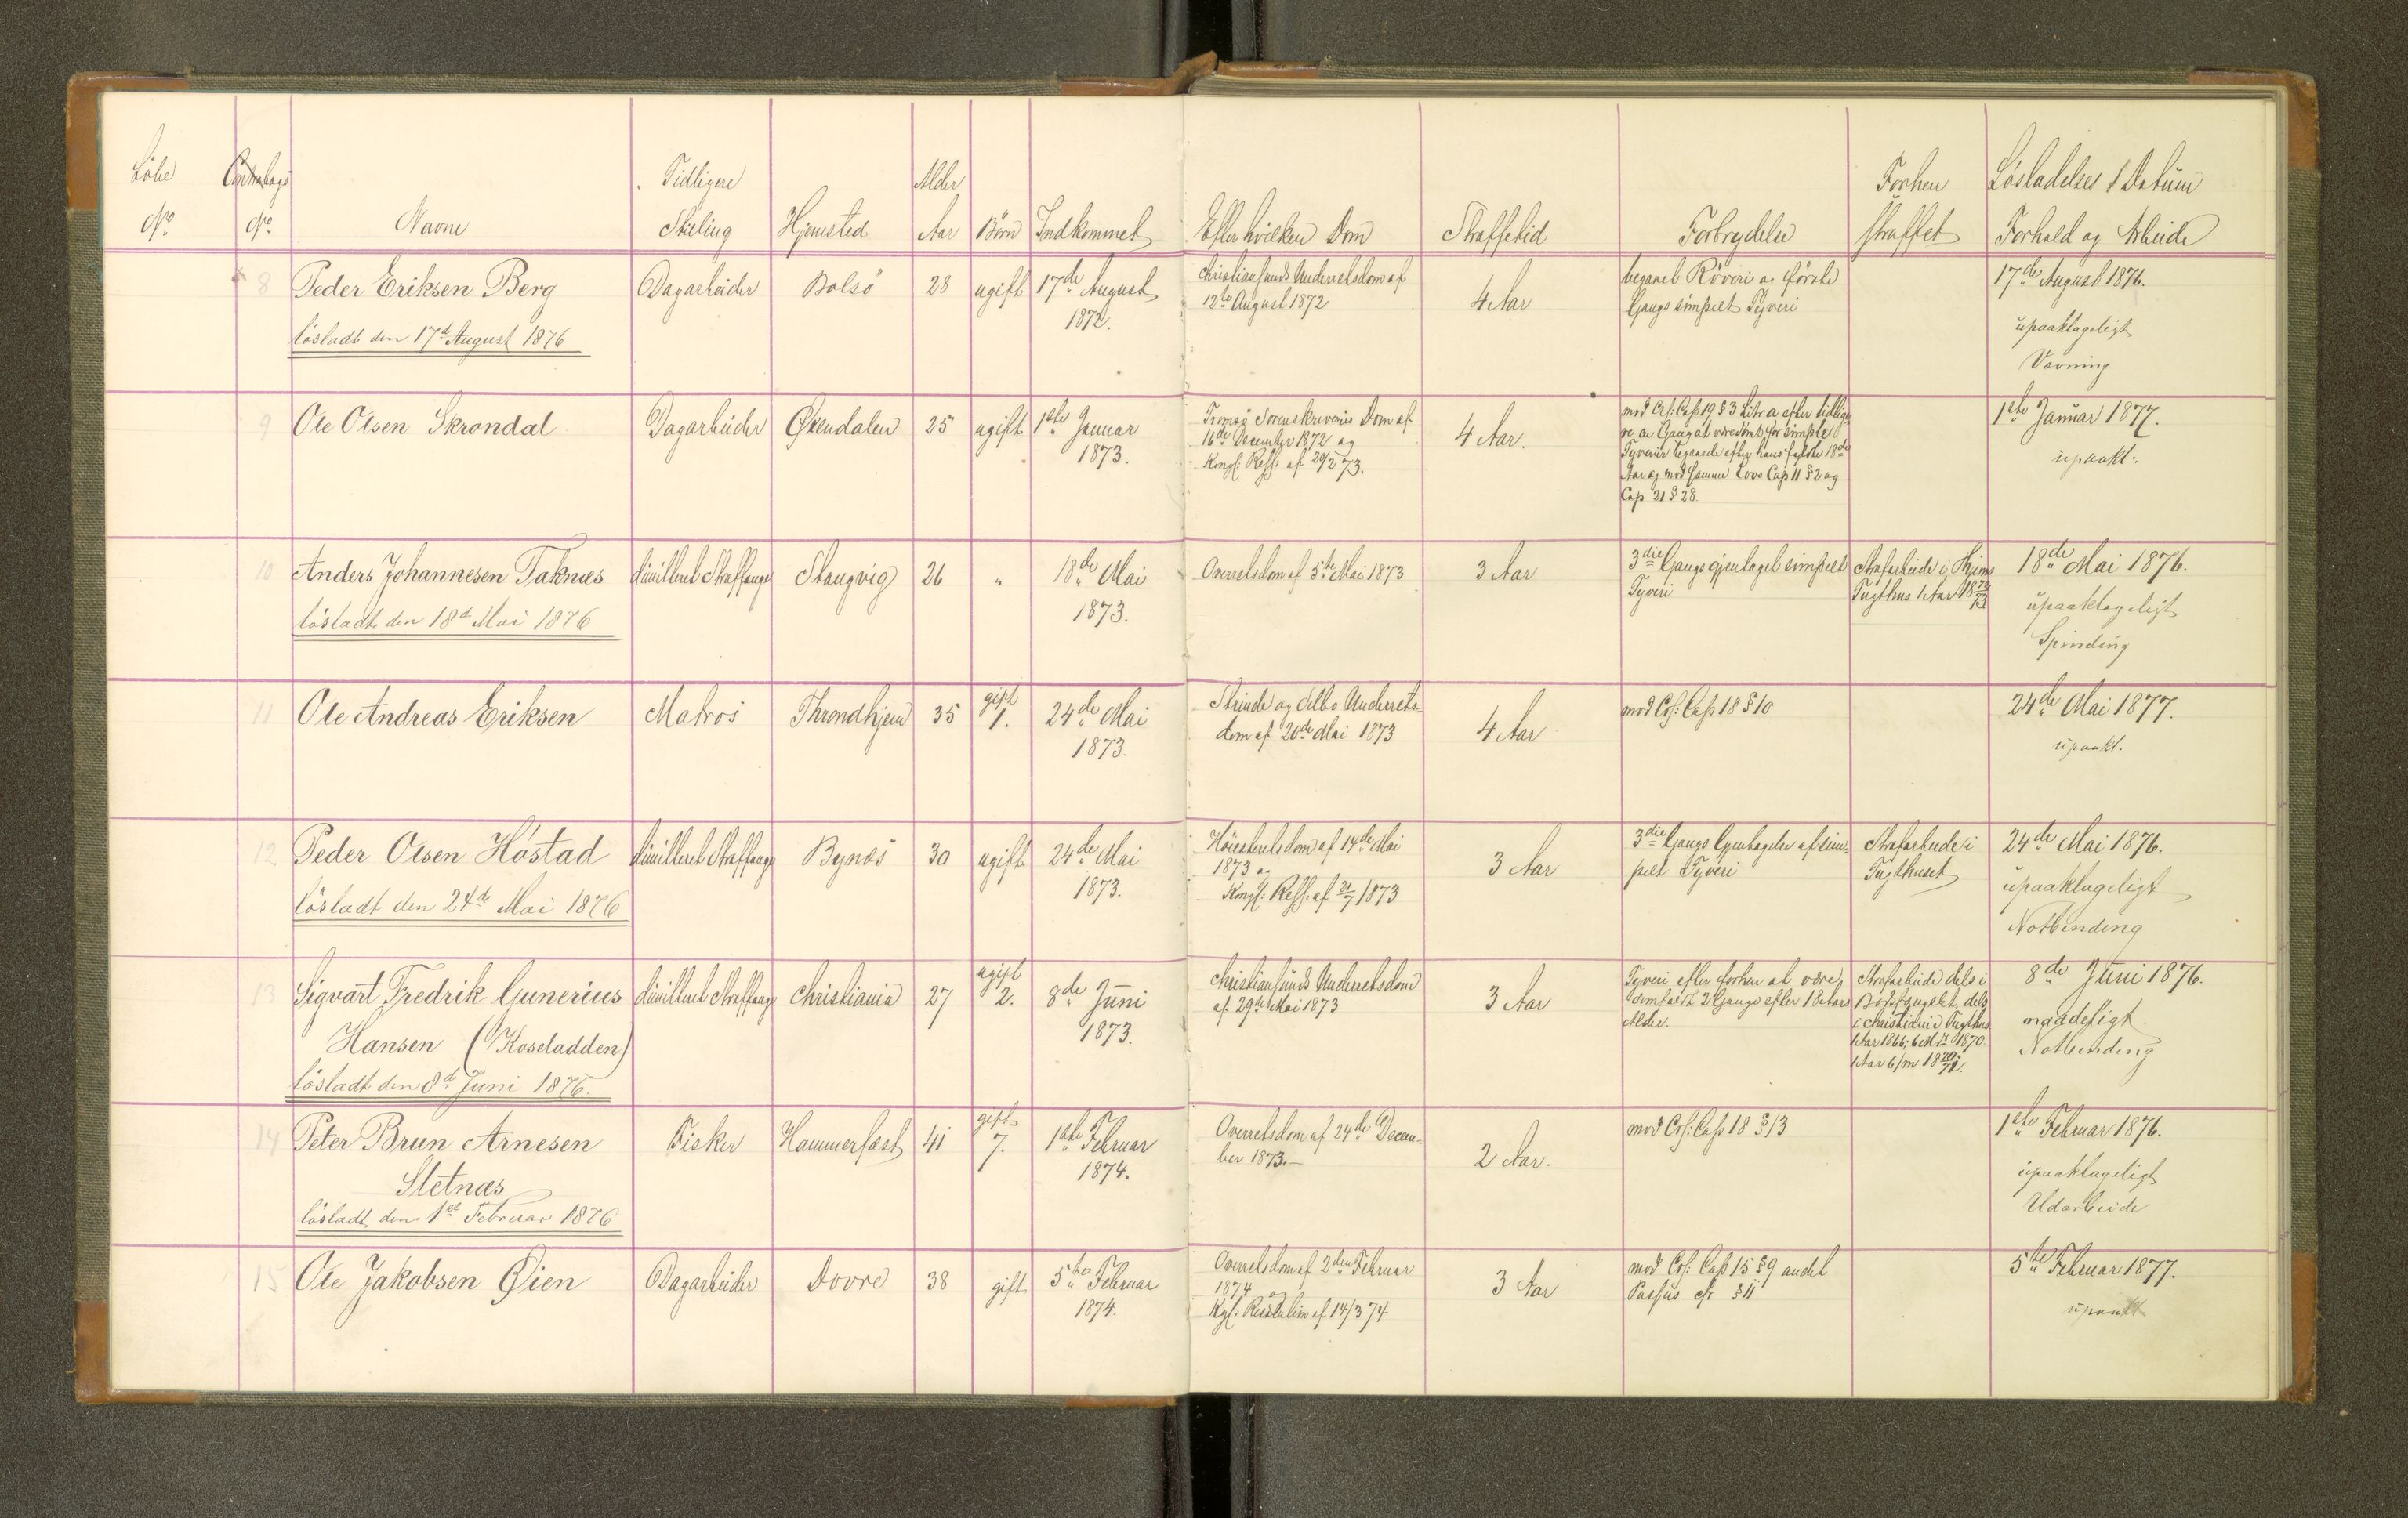 Löbe
No
Contrabogs
No
Navne
Tidligere
Stilling
Hjemsted
Alder
Aar
Börn
Indkommet
Efter hvilken Dom
Straffetid
Forbrydelse
Forhen
straffet
Lösladelses Datum
Forhold og Arbeide
8
Peder Eriksen Berg
lösladt den 17d August 1876
Dagarbeider
Bolsö
28
ugift
17de August
1872.
Christiansunds Underretsdom af
12te August 1872
4 Aar
begaaet Röveri og förste
Gangs simpelt Tyveri
17de August 1876.
upaaklageligt
Vævning
9
Ole Olsen Skrondal
Dagarbeider
Øxendalen
25
ugift
1ste Januar
1873.
Tromsö Sorenskriveris Dom af
16de December 1872 og
Kongl: Ress: af 29/2 73.
4 Aar.
mod Crl: Cap 19 § 3 Litr a efter tidlige
re en Gang at være dömt for simple
Tyverier begaaede efter hans fyldte 18de
Aar og mod samme Lovs Cap 11 § 2 og
Cap 21 § 28.
1ste Januar 1877.
upaakl:
10
Anders Johannesen Taknæs
lösladt den 18de Mai 1876
dimitteret Straffange
Stangvig
26
"
18de Mai
1873.
Overretsdom af 5te Mai 1873
3 Aar
3die Gangs gjentaget simpelt
Tyveri
Strafarbeide i Thjems
Tugthus 1 Aar 1872/73
18de Mai 1876.
upaaklageligt
Spinding
11
Ole Andreas Eriksen
Matros
Throndhjem
35
gift
1.
24de Mai
1873.
Strinde og Selbo Underrets-
dom af 20de Mai 1873
4 Aar
mod Crl: Cap 18 § 10
24de Mai 1877.
upaakl.
12
Peder Olsen Höstad
lösladt den 24de Mai 1876
dimitteret Straffange
Bynæs
30
ugift
24de Mai
1873.
Höiesteretsdom af 14de Mai
1873 og
Kongl: Ress. af 21/7 1873
3 Aar
3die Gangs Gjentagelse af sim-
pelt Tyveri
Strafarbeide i
Tugthuset
24de Mai 1876.
upaaklageligt
Notbinding
13
Sigvart Fredrik Gunerius
Hansen (Koseladden)
lösladt den 8d Juni 1876.
dimitteret Straffange
Christiania
27
ugift
2.
8de Juni
1873.
Christiansunds Underretsdom
af 29de Mai 1873
3 Aar
Tyveri efter forhen at være
domfældt 2 Gange efter 18 Aars
Alder.
Strafarbeide dels i
Bodsfængslet, dels
i Christiania Tugthus
1 Aar 1866; 6 M 1870
1 Aar 6/m 1870/72.
8de Juni 1876.
maadeligt.
Notbinding
14
Peter Brun Arnesen
Sletnæs
lösladt den 1ste Februar 1876
Fisker
Hammerfæst
41
gift
7.
1ste Februar
1874.
Overretsdom af 24de Decem-
ber 1873.-
2 Aar.
mod Crl: Cap 18 § 13
1ste Februar 1876.
upaaklageligt
Udarbeide
15
Ole Jakobsen Øien
Dagarbeider
Dovre
38
gift
5te Februar
1874.
Overretsdom af 2den Februar
1874 og
Kgl: Resolution af 14/3 74
3 Aar
mod Crl: Cap 15 § 9 andet
Passus cfr § 11
5te Februar 1877.
upaakl